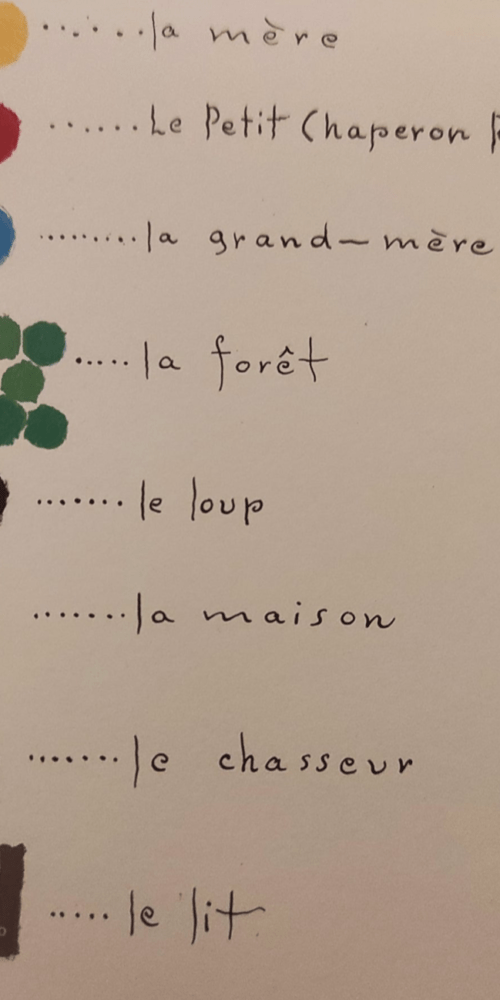 ......la mère
......Le Petit Chaperon
.........la grand-mère
.....la forêt
.......le loup
.......la maison
.......le chasseur
.....le lit